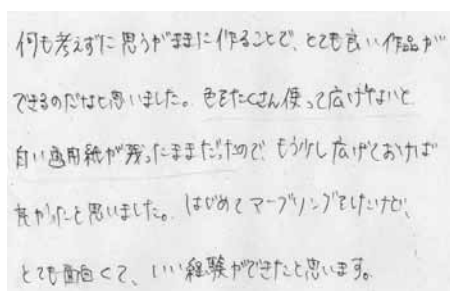 何も考えずに思うがままに作ることで、とても良い作品が
できるのだなと思いました。色をたくさん使って広げないと
白い画用紙が残ったままだったので、もう少し広げておけば
良かったと思いました。はじめてマーブリングをしたけど、
とても面白くて、いい経験ができたと思います。